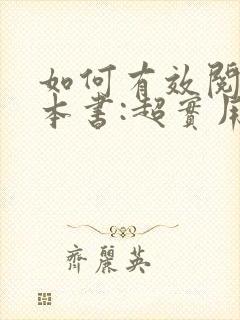 如何有效閱
本書:超實用
齊麗英